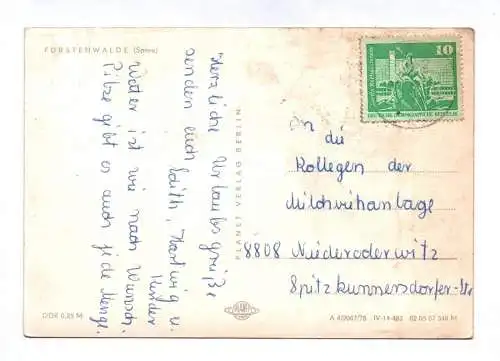 FÜRSTENWALDE (Spree)
Herzliche Urlaubsgrüße
senden euch Edith, Hartwig u.
Kinder
Wetter ist wie nach Wunsch.
Pilze gibt es auch jede Menge.
PLANET VERLAG BERLIN
10
DEUTSCHE DEMOKRATISCHE REPUBLIK
An die
Kollegen der
Milchviehanlage
8808 Niederoderwitz
Spitzkunnersdorfer-Str
DDR 0,25 M
PLANET
A 4/2067/78 IV-14-483 02 05 07 348 M